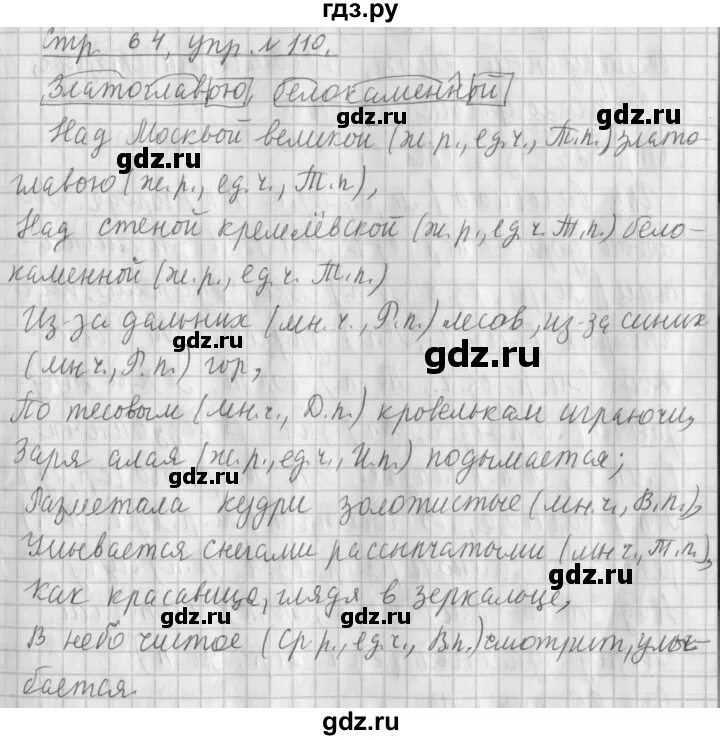 гдз.ру
Стр. 64, упр. № 110.
Златоглавою, белокаменный
Над Москвой великой (ж.р., ед.ч., Т.п.) злато-
главою (ж.р., ед.ч., Т.п.),
Над стеной кремлёвской (ж.р., ед.ч. Т.п.) бело-
каменной (ж.р., ед.ч. Т.п.)
Из-за дальних (мн.ч., Р.п.) лесов, из-за синих
(мн.ч., Р.п.) гор,
По тесовым (мн.ч., Д.п.) кровелькам играючи,
Заря алая (ж.р., ед.ч., И.п.) подымается;
Разметала кудри золотистые (мн.ч., В.п.),
Умывается снегами рассыпчатыми (мн.ч., Т.п.),
Как красавица, глядя в зеркальце,
В небо чистое (Ср.р., ед.ч., В.п.) смотрит, улы-
бается.
gdz.ru
gdz.ru
gdz.ru
gdz.ru
gdz.ru
gdz.ru
gdz.ru
gdz.ru
gdz.ru
gdz.ru